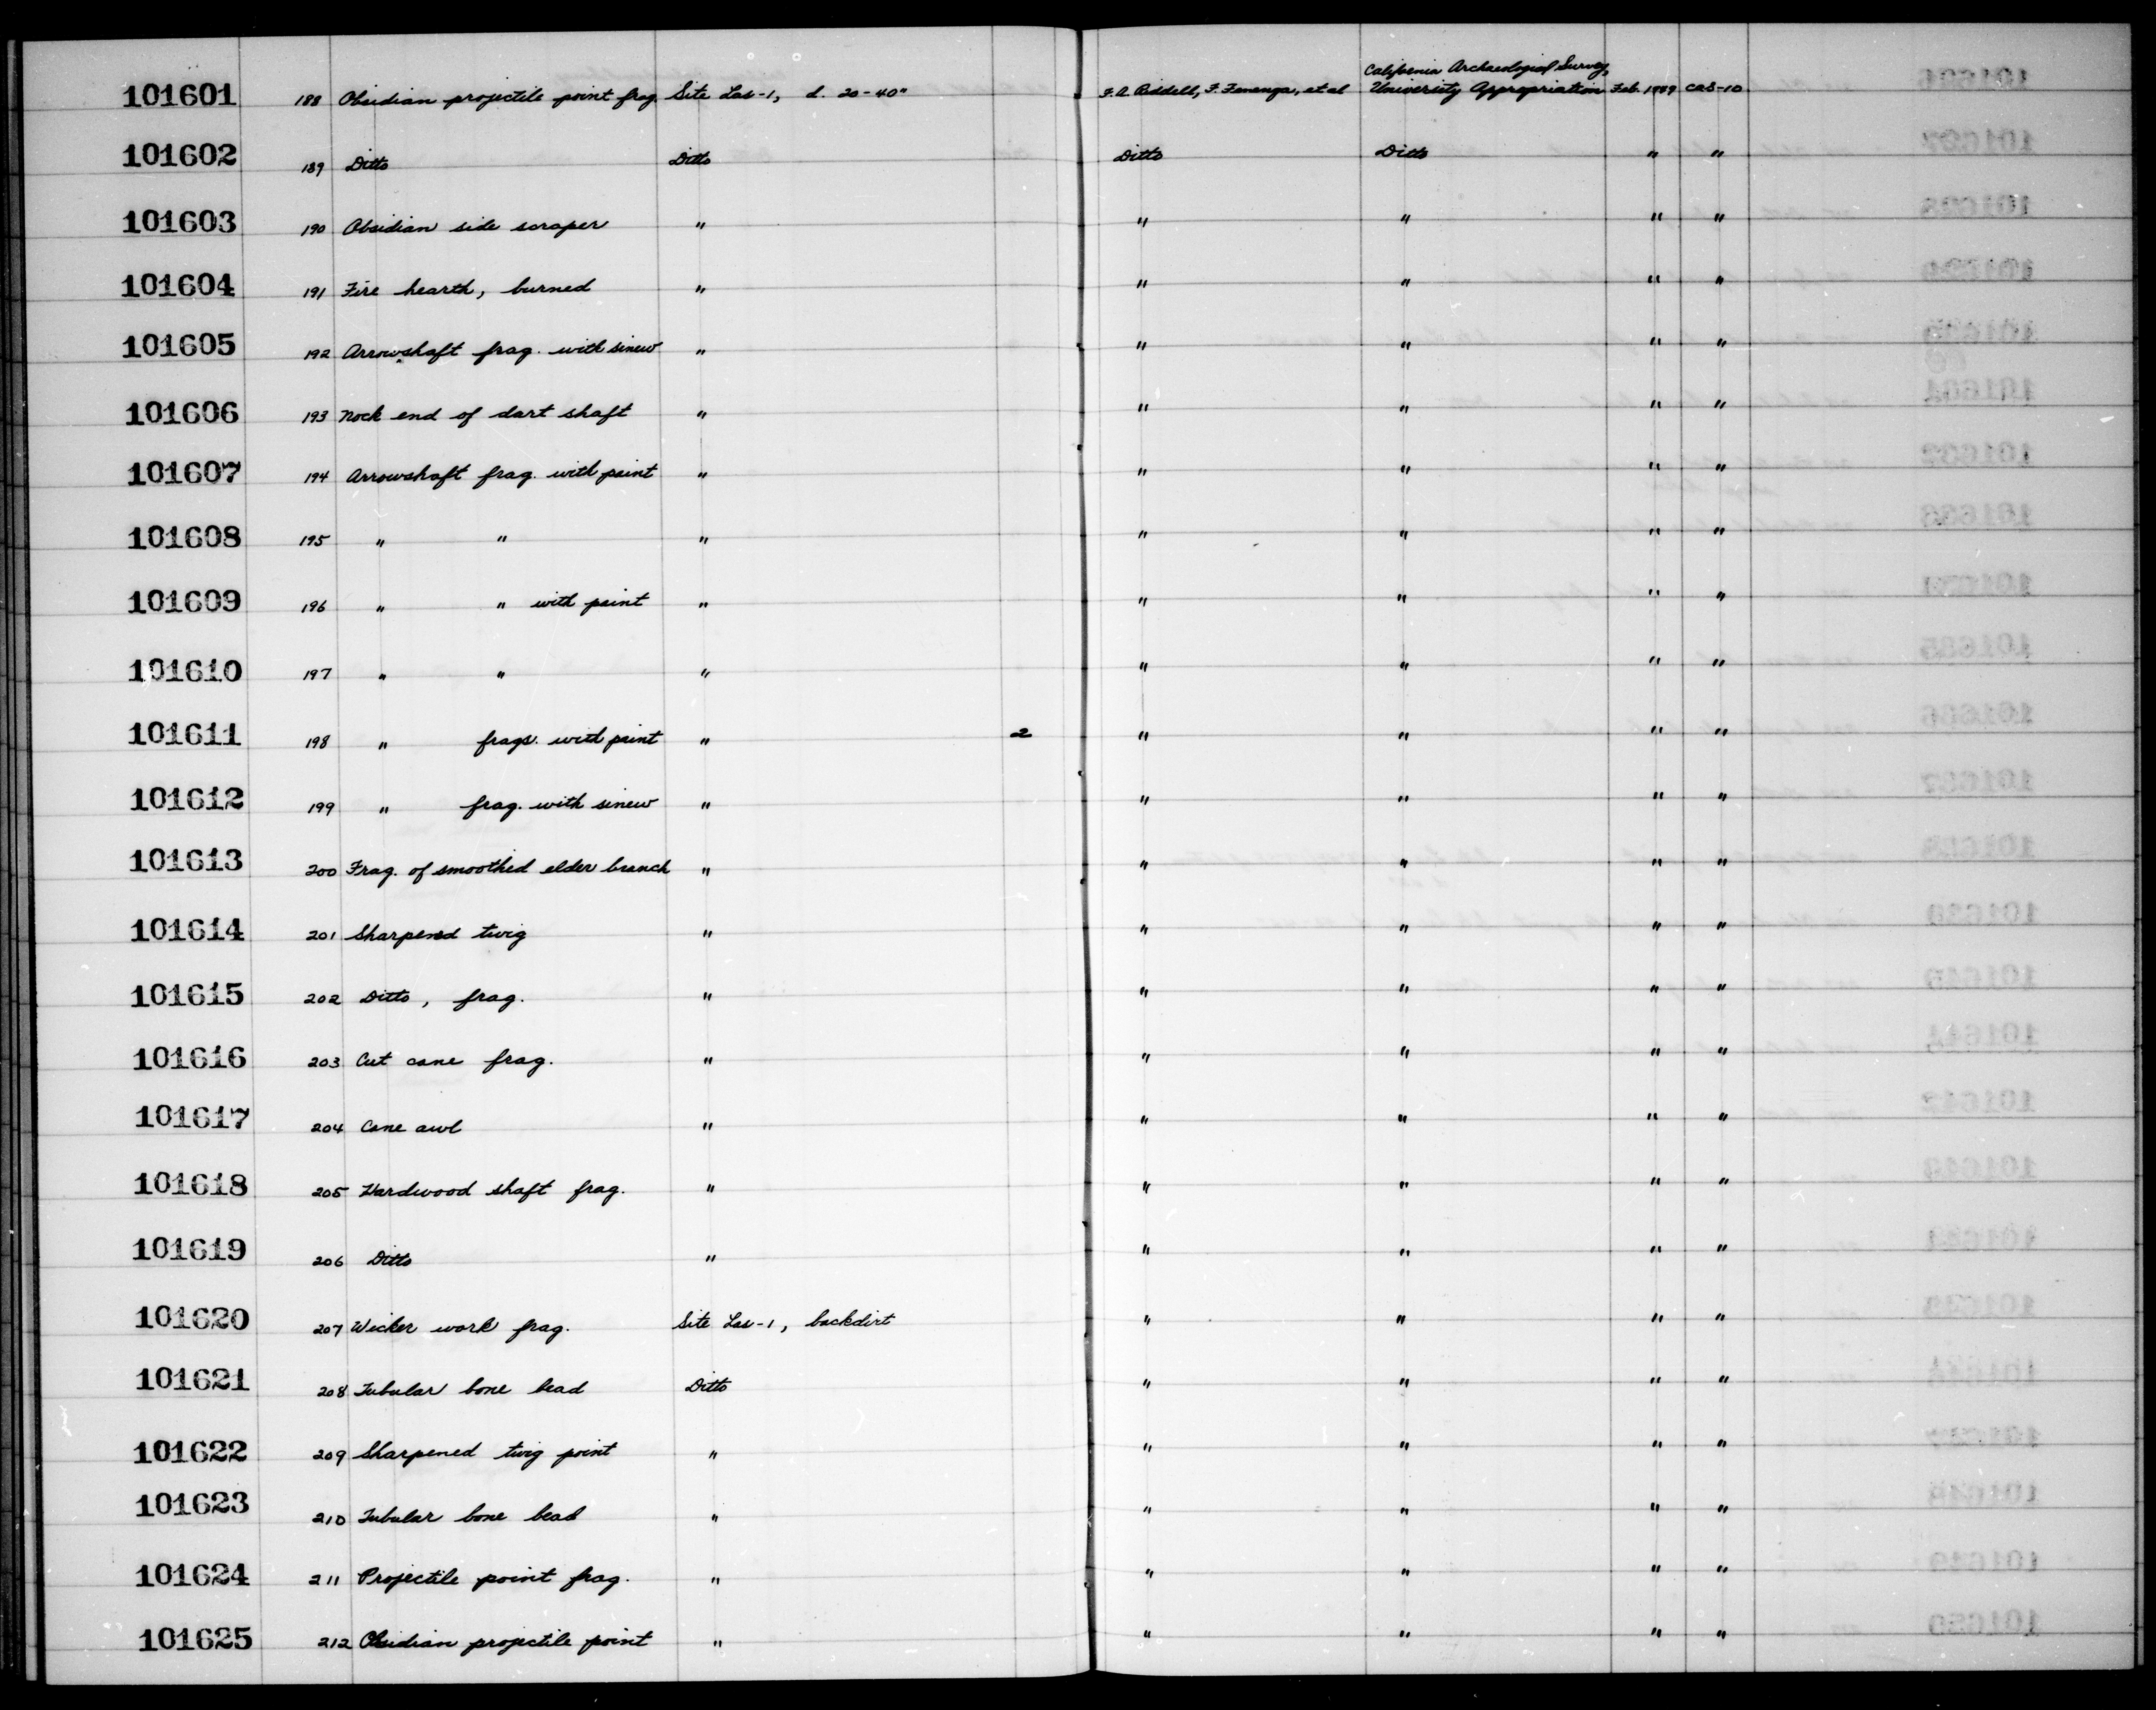 101601 188 Obsidian projectile point frag. Site Las-1, d. 20-40" F.A. Riddell, F. Fenenga, et al California Archaeological Survey, University Appropriation Feb. 1949 CAS-10
101602 189 Ditto Ditto Ditto Ditto " "
101603 190 Obsidian side scraper " " " " "
101604 191 Fire hearth, burned " " " " "
101605 192 Arrowshaft frag. with sinew " " " " "
101606 193 Nock end of dart shaft " " " " "
101607 194 Arrowshaft frag. with paint " " " " "
101608 195 " " " " " " "
101609 196 " " with paint " " " " "
101610 197 " " " " " " "
101611 198 " frags. with paint " 2 " " " "
101612 199 " frag. with sinew " " " " "
101613 200 Frag. of smoothed elder branch " " " " "
101614 201 Sharpened twig " " " " "
101615 202 Ditto, frag. " " " " "
101616 203 Cut cane frag. " " " " "
101617 204 Cane awl " " " " "
101618 205 Hardwood shaft frag. " " " " "
101619 206 Ditto " " " " "
101620 207 Wicker work frag. Site Las-1, backdirt " " " "
101621 208 Tubular bone bead Ditto " " " "
101622 209 Sharpened twig point " " " " "
101623 210 Tubular bone bead " " " " "
101624 211 Projectile point frag. " " " " "
101625 212 Obsidian projectile point " " " " "